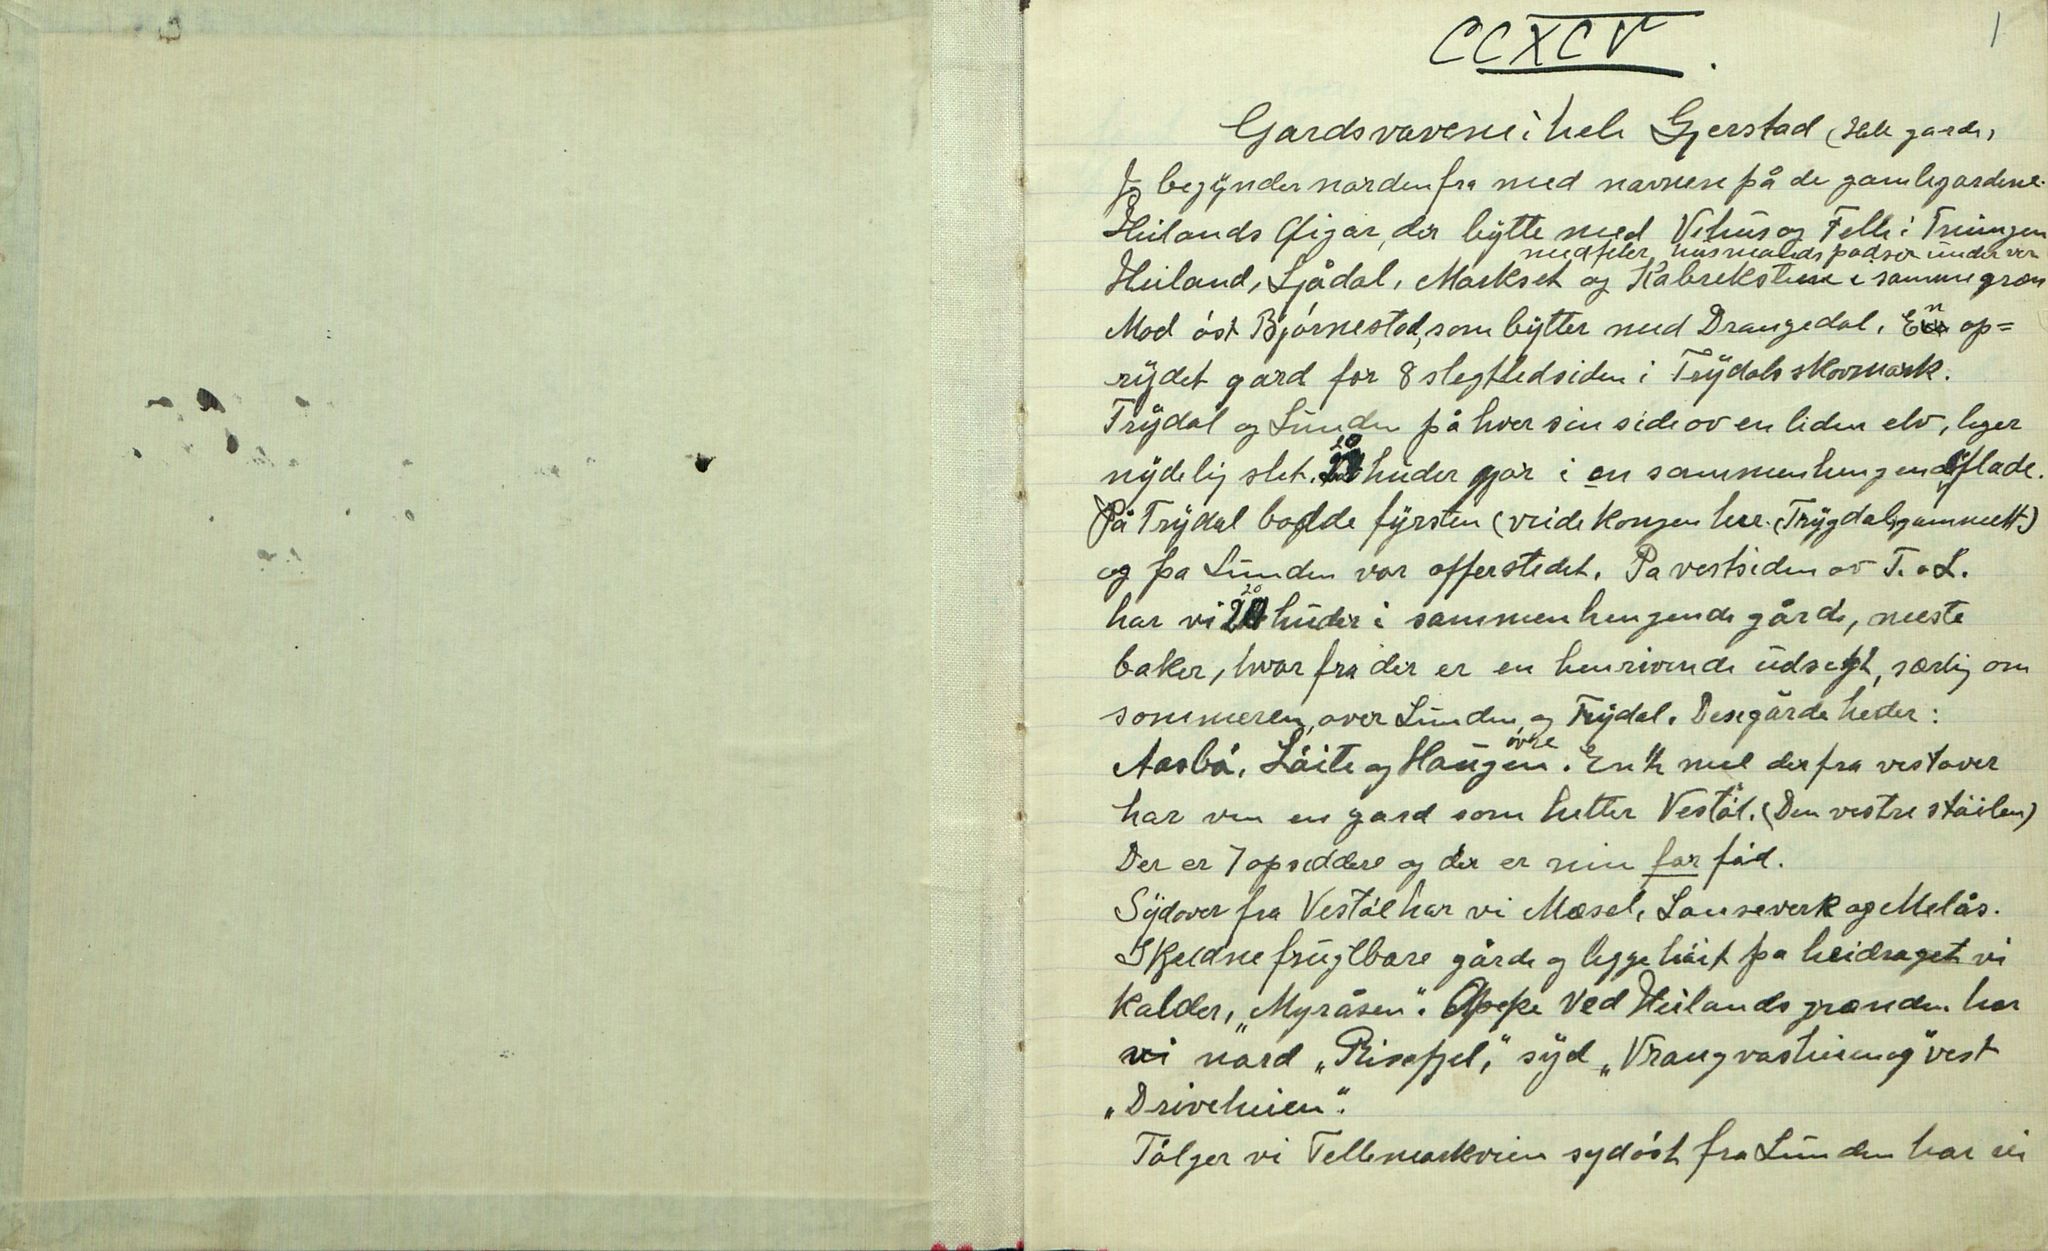 CCXCV.
1
Gardsnavene i hele Gjerstad (Hele garde,
Jeg begynder nordenfra med navnene på de gamlegardene.
Heilands Øigar, der bytte med Vehus og Felle i Treungen
medfeler, husmandspadser under ver
Heiland, Ljådal, Markset og Kabreksteine i samme græn
Mod óst Bjórnestad, som bytter med Drangedal. En op=
rydet gard for 8 slegtledsiden i Trydals skovmark.
Trydal og Lunden på hver sin side av en liden elv, leger
nydelig slet. 20 huder gjor i en sammenhengende flade.
På Trydal bodde fyrsten (veidekongen her. (Trygdal, gammelt.)
og pa Lunden var offerstedet. Pa vestsiden av T. o L.
har vi 20 huder i sammenhengende gårde, meste
baker, hvor fra der er en henrivende udsegt, særlig om
sommeren, over Lunden og Trydal. Desegårde heder:
Aasbó, Lóite og Haugen óvre. En ½ mil derfra vestover
har ven en gard som hetter Vestól. (Den vestre stóilen)
Der er 7 opsiddere og der er min far fód.
Sydover fra Vestól har vi Mæsel, Lauseverk og Melås.
Skjedne frugtbare gårde og legge hóit pa heidraget vi
kalder, „Myråsen“. Oppe ved Heilands grænden har
vi nord „Risefjel,“ syd „Vrangvastheien og“ vest
„Driveheien“.
Tólger vi Tellemarkveien sydóst fra Lunden har vi